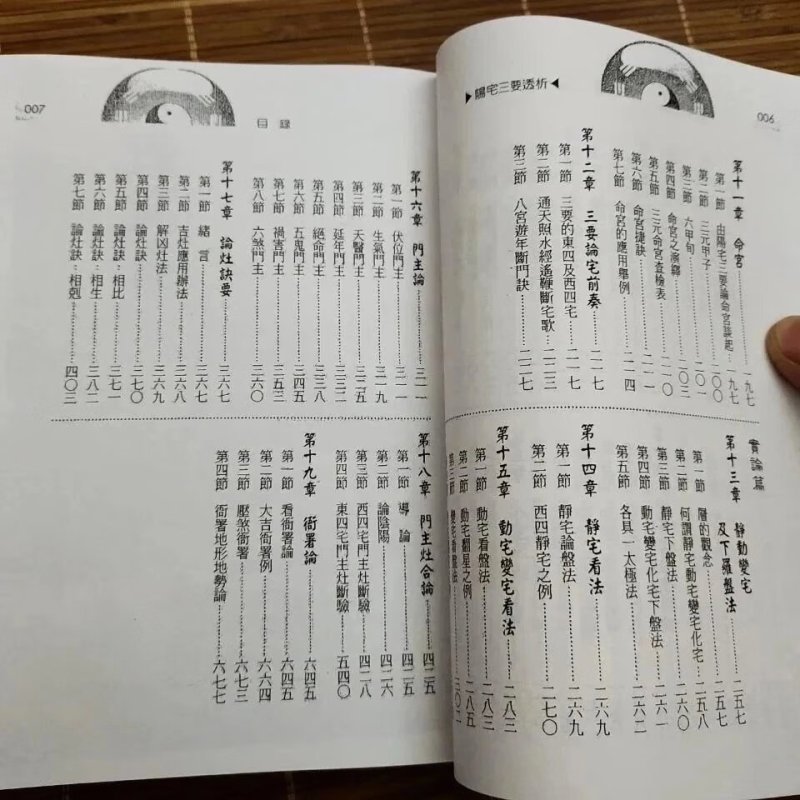 006
▶陽宅三要透析◀
第十一章 命宮………一九七
第一節 由陽宅三要論命宮談起…一九七
第二節 三元甲子………二〇〇
第三節 六甲旬………二〇三
第四節 命宮之演繹………二一〇
第五節 三元命宮查檢表………二一一
第六節 命宮捷訣………二一一
第七節 命宮的應用舉例………二一四
第十二章 三要論宅前奏………二一七
第一節 三要的東四及西四宅………二一七
第二節 通天照水經遙鞭斷宅歌………二二三
第三節 八宮遊年斷門訣………二二七
實論篇
第十三章 靜動變宅及下羅盤法………二五七
第一節 層的觀念………二五七
第二節 何謂靜宅動宅變宅化宅………二五八
第三節 靜宅下盤法………二六〇
第四節 動宅變宅化宅下盤法………二六一
第五節 各具一太極法………二六二
第十四章 靜宅看法………二六九
第一節 靜宅論盤法………二六九
第二節 西四靜宅之例………二七〇
第十五章 動宅變宅看法………二八三
第一節 動宅看盤法………二八三
第二節 動宅翻星之例………二八五
第三節 變宅看盤法
007
目錄
第十六章 門主論………三一一
第一節 伏位門主………三一一
第二節 生氣門主………三一九
第三節 天醫門主………三二五
第四節 延年門主………三三二
第五節 絕命門主………三三八
第六節 五鬼門主………三四五
第七節 禍害門主………三五三
第八節 六煞門主………三六〇
第十七章 論灶訣要………三六七
第一節 緒言………三六七
第二節 吉灶應用辦法………三六八
第三節 解凶灶法………三六九
第四節 論灶訣………三七〇
第五節 論灶訣：相比………三七一
第六節 論灶訣：相生………三八二
第七節 論灶訣：相剋………四〇三
第十八章 門主灶合論………四二五
第一節 導論………四二五
第二節 論陰陽………四二六
第三節 西四宅門主灶斷驗………四二八
第四節 東四宅門主灶斷驗………五四〇
第十九章 衙署論………六四五
第一節 看衙署論………六四五
第二節 大吉衙署例………六六四
第三節 壓煞衙署………六七三
第四節 衙署地形地勢論………六七七